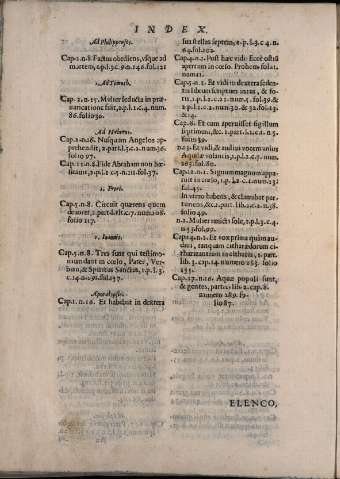 INDEX.
Ad Philippenses.
Cap. 2. n. 8. Factus obediens, usque ad
mortem, 2. p. l. 3. c. 9. n. 146. fol. 121
1. ad Timoth.
Cap. 2. n. 15. Mulier seducta in præ-
varicatione fuit, 2. p. l. 1. c. 4. num.
86. folio 30.
Ad Hebræos.
Cap. 2. n. 16. Nusquam Angelos ap-
prehendit, 2. part. l. 3. c. 2. num. 36.
folio 97.
Cap. 11. n. 8. Fide Abraham non hæ-
sitavit, 2. p. l. 2. c. 5. n. 211. fol. 37.
1. Petri.
Cap. 5. n. 8. Circuit quærens quem
devoret, 2. part. l. 3. c. 7. num. 108.
folio 117.
1. Ioannis.
Cap. 5. n. 8. Tres sunt qui testimo-
nium dant in cœlo, Pater, Ver-
bum, & Spiritus Sanctus, 1. p. l. 3.
c. 14. n. 291. fol. 137.
Apocalypsis.
Cap. 1. n. 16. Et habebat in dextera
sua stellas septem, 2. p. l. 3. c. 4. n.
64. fol. 102.
Cap. 4. n. 1. Post hæc vidi: Ecce ostiũ
apertum in cœlo. Prohem. fol. 1.
num. 1.
Cap. 5. n. 1. Et vidi in dextera seden-
tis librum scriptum intus, & fo-
ris, 1. p. l. 2. c. 21. num. 5. fol. 39. &
2. p. l. 1. c. 2. n. 30. & 34. fol. 12. &
13.
Cap. 8. Et cum aperuisset sigillum
septimum, &c. 1. part. l. 1. c. 1. n. 5.
folio 39.
n. 13. Et vidi, & audivi vocem unius
Aquilæ volantis, 2. p. l. 3. c. 4. n. 71.
folio 103.
Cap. 12. n. 1. Signum magnum appa-
ruit in cœlo, 1. p. l. 2. c. 1. num. 23.
fol. 45.
In utero habens, & clamabat par-
turiens, &c. 1. part. lib. 2. c. 1. n. 36.
folio 49.
n. 1. Mulier amicta sole, 2. p. l. 3. c. 4.
n. 53. fol. 99.
Cap. 14. n. 2. Et vox prima quàm au-
divi, tanquam citharædorum ci-
tharizantium in citharis, 1. part.
lib. 3. cap. 14. numero 263. folio
135.
Cap. 17. n. 16. Aquæ populi sunt,
& gentes, part. 1. lib. 2. cap. 8.
numero 289. fo-
lio 87.
ELENCO,